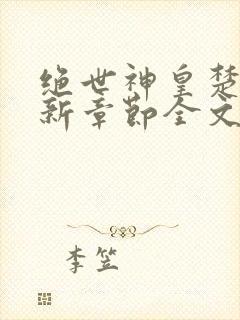 绝世神皇楚
新章节全文
李笠